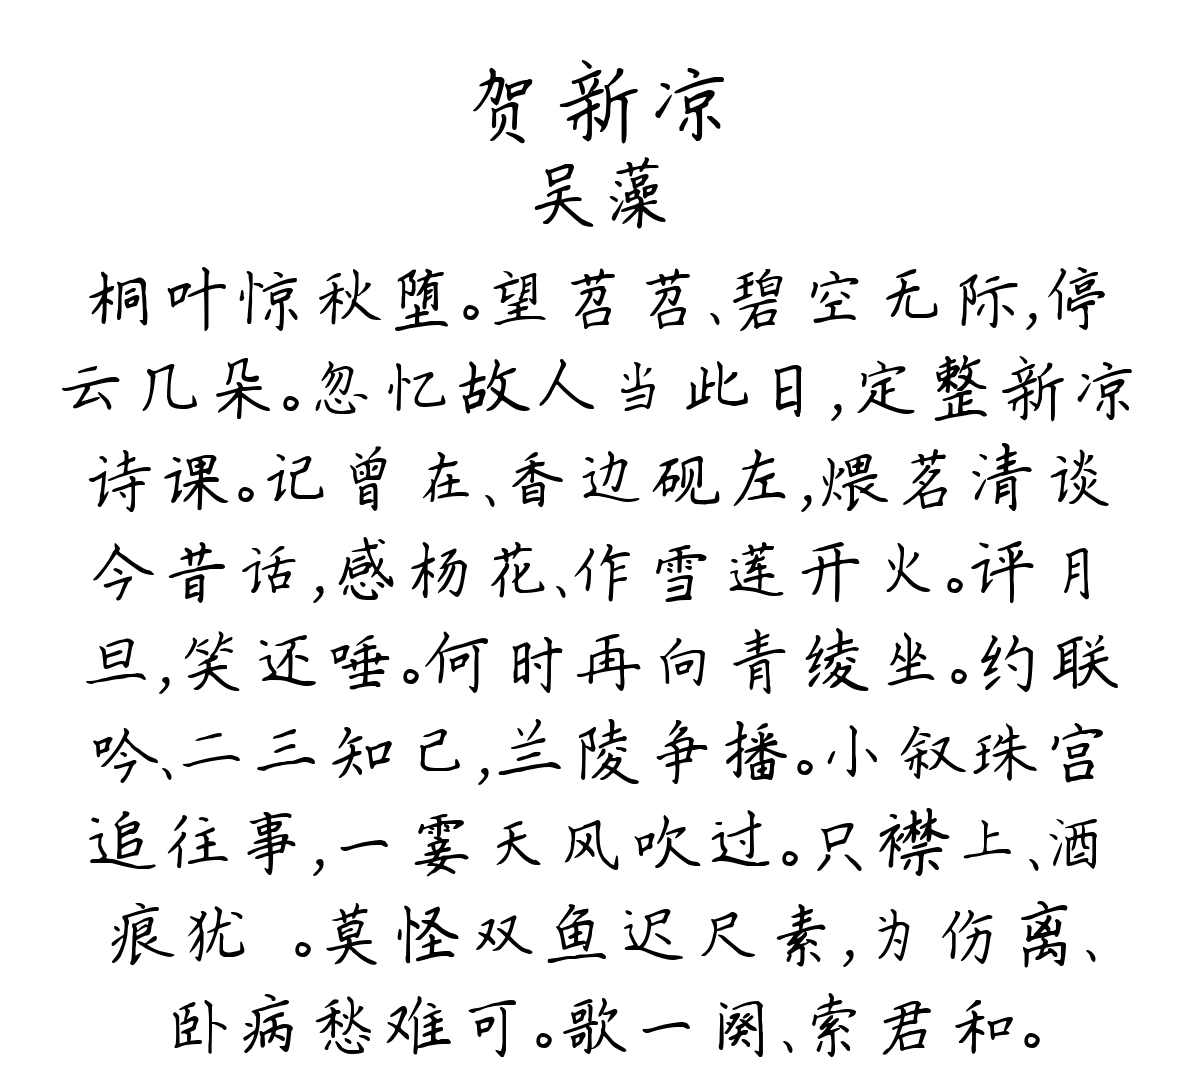 贺新凉
吴藻
桐叶惊秋堕。望苕苕、碧空无际,停
云几朵。忽忆故人当此日,定整新凉
诗课。记曾在、香边砚左,煨茗清谈
今昔话,感杨花、作雪莲开火。评月
旦,笑还唾。何时再向青绫坐。约联
吟、二三知己,兰陵争播。小叙珠宫
追往事,一霎天风吹过。只襟上、酒
痕犹 。莫怪双鱼迟尺素,为伤离、
卧病愁难可。歌一阕、索君和。